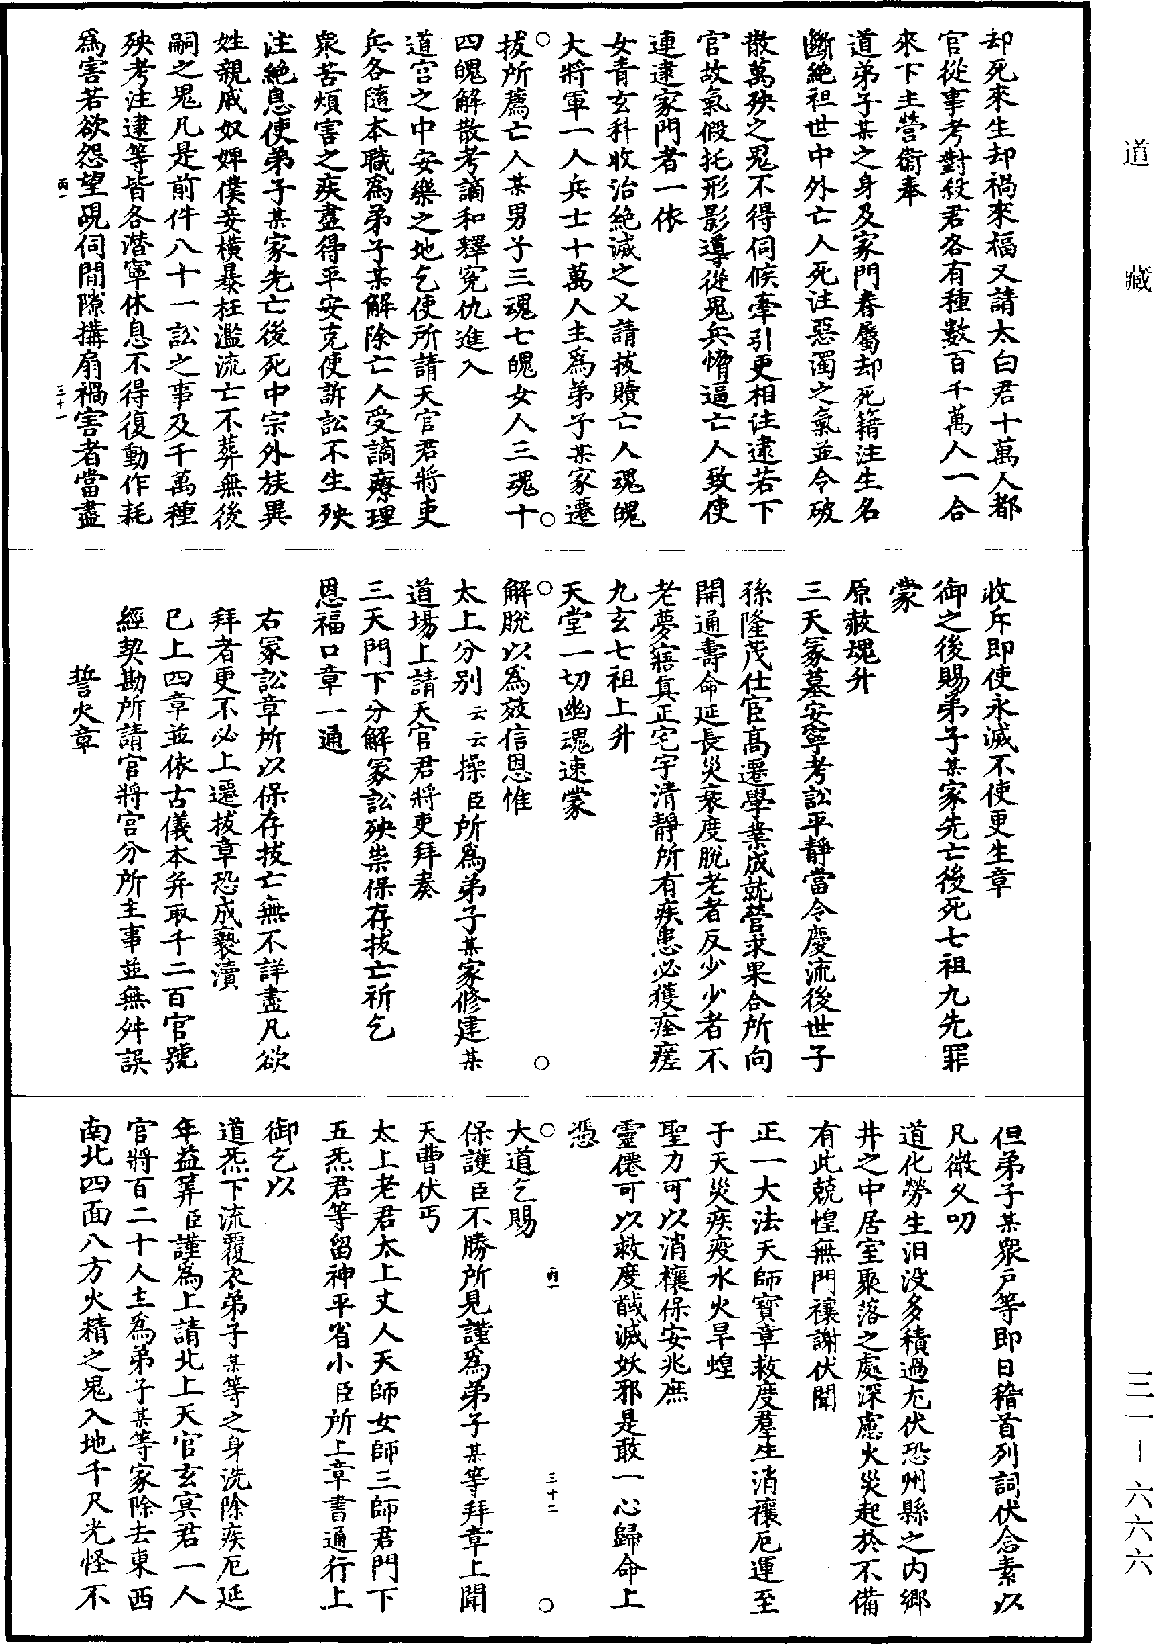 道藏
三一－六六六
却死來生却禍來福又請太白君十萬人都
官從事考對殺君各有種數百千萬人一合
來下主營衛奉
道弟子某之身及家門眷屬却死籍注生名
斷絶祖世中外亡人死注惡濁之氣並令破
散萬殃之鬼不得伺候牽引更相注逮若下
官故氣假托形影導從鬼兵脅逼亡人致使
連逮家門者一依
女青玄科收治絶滅之又請拔贖亡人魂魄
大將軍一人兵士十萬人主爲弟子某家遷
拔所薦亡人某男子三魂七魄女人三魂十
四魄解散考謫和釋寃仇進入
道宮之中安樂之地乞使所請天官君將吏
兵各隨本職爲弟子某解除亡人受謫療理
衆苦煩害之疾盡得平安克使訴訟不生殃
注絶息使弟子某家先亡後死中宗外族異
姓親戚奴婢僕妾橫暴枉濫流亡不葬無後
嗣之鬼凡是前件八十一訟之事及千萬種
殃考注逮等皆各潛寧休息不得復動作耗
爲害若欲怨望覘伺間隙搆扇禍害者當盡
丙一
三十一
收斥即使永滅不使更生章
御之後賜弟子某家先亡後死七祖九先罪
蒙
原赦魂升
三天冢墓安寧考訟平靜當令慶流後世子
孫隆茂仕官高遷學業成就營求果合所向
開通壽命延長災衰度脫老者反少少者不
老夢寤真正宅宇清靜所有疾患必獲痊瘥
九玄七祖上升
天堂一切幽魂速蒙
解脫以爲效信恩惟
太上分別云云操臣所爲弟子某家修建某
道場上請天官君將吏拜奏
三天門下分解冢訟殃祟保存拔亡祈乞
恩福口章一通
右冢訟章所以保存拔亡無不詳盡凡欲
拜者更不必上遷拔章恐成褻瀆
已上四章並依古儀本并取千二百官號
經契勘所請官將宮分所主事並無舛誤
誓火章
但弟子某衆戶等即日稽首列詞伏念素以
凡微久叨
道化勞生汨没多積過尤伏恐州縣之內鄉
井之中居室聚落之處深慮火災起於不備
有此兢惶無門禳謝伏聞
正一大法天師寶章救度羣生消禳厄運至
于天災疾疫水火旱蝗
聖力可以消禳保安兆庶
靈僊可以救度馘滅妖邪是敢一心歸命上
憑
大道乞賜
保護臣不勝所見謹爲弟子某等拜章上聞
天曹伏丐
太上老君太上丈人天師女師三師君門下
五炁君等留神平省小臣所上章書通行上
御乞以
道炁下流覆衣弟子某等之身洗除疾厄延
年益筭臣謹爲上請北上天官玄冥君一人
官將百二十人主爲弟子某等家除去東西
南北四面八方火精之鬼入地千尺光怪不
丙一
三十二